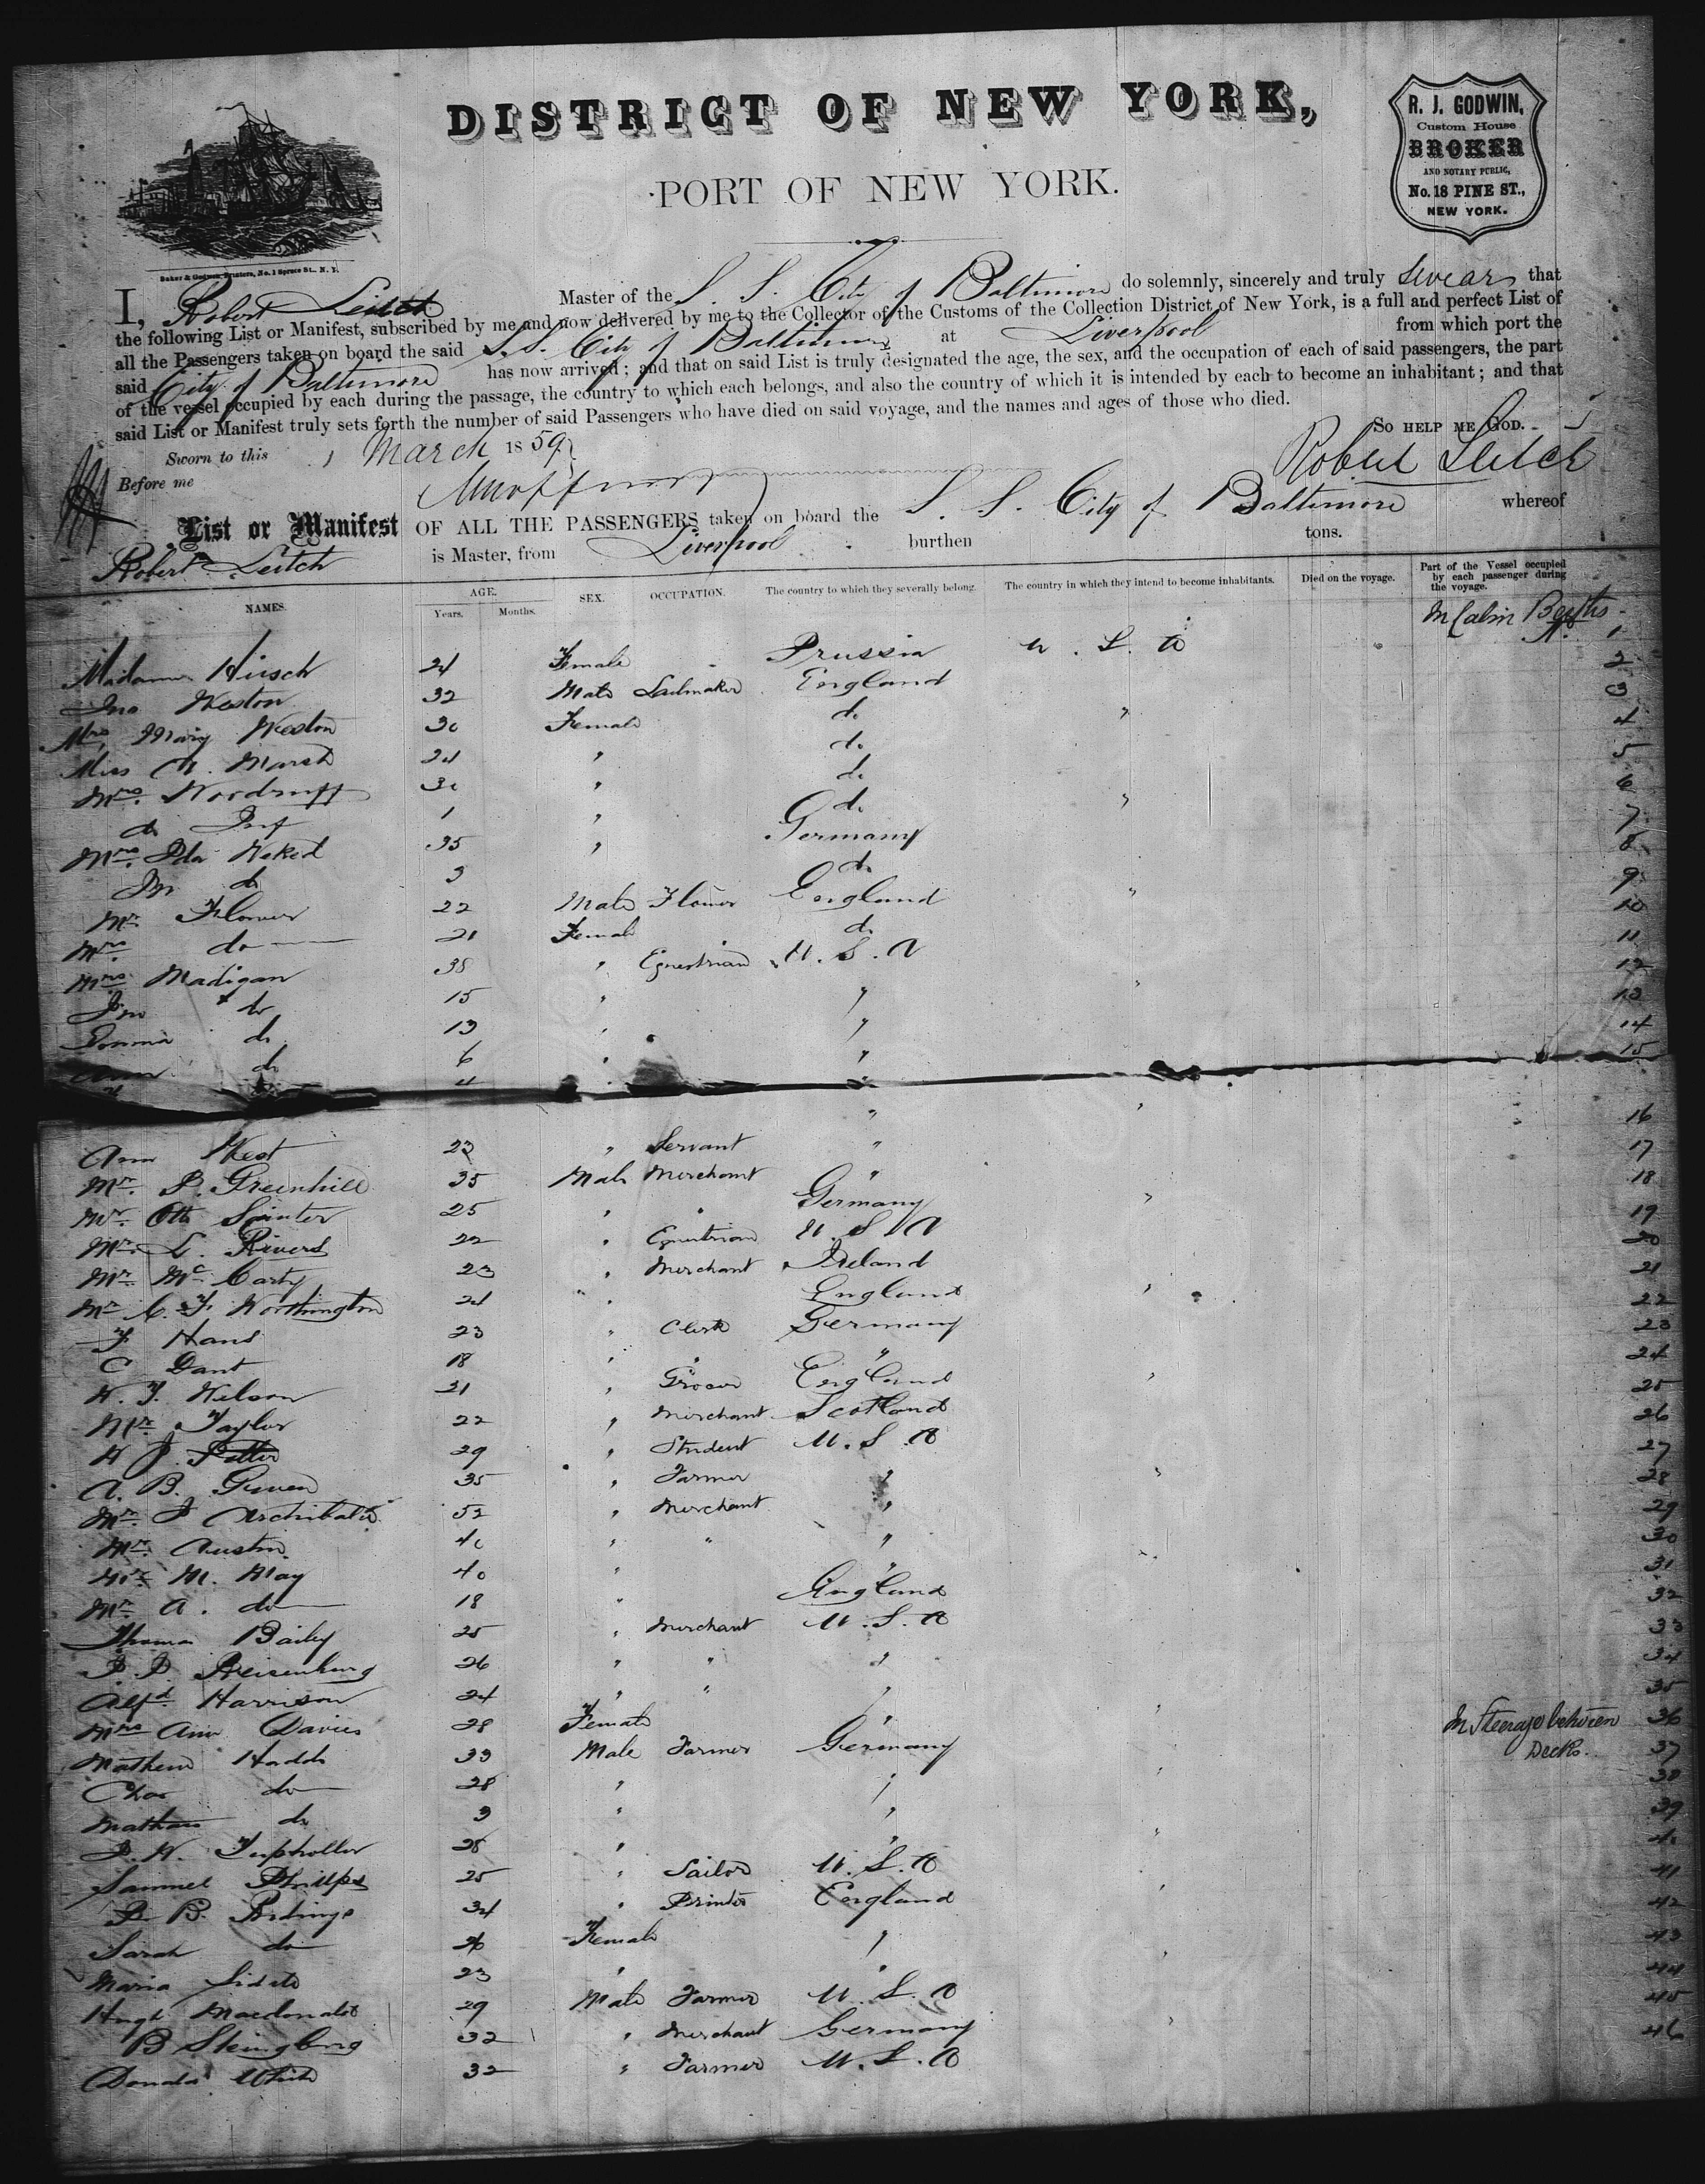 DISTRICT OF NEW YORK,
PORT OF NEW YORK.
R. J. GODWIN,
Custom House
BROKER
AND NOTARY PUBLIC,
No. 18 PINE ST.,
NEW YORK.
Baker & Godwin, Printers, No. 1 Spruce St., N. Y.
I, Robert Leitch Master of the S. S. City of Baltimore do solemnly, sincerely and truly swear that
the following List or Manifest, subscribed by me and now delivered by me to the Collector of the Customs of the Collection District of New York, is a full and perfect List of
all the Passengers taken on board the said S.S. City of Baltimore at Liverpool from which port the
said City of Baltimore has now arrived; and that on said List is truly designated the age, the sex, and the occupation of each of said passengers, the part
of the vessel occupied by each during the passage, the country to which each belongs, and also the country of which it is intended by each to become an inhabitant; and that
said List or Manifest truly sets forth the number of said Passengers who have died on said voyage, and the names and ages of those who died.
SO HELP ME GOD.
Sworn to this 1 March 1859
Robert Leitch
Before me
List or Manifest OF ALL THE PASSENGERS taken on board the S. S. City of Baltimore whereof
Robert Leitch is Master, from Liverpool burthen tons.
NAMES. AGE. Years. Months. SEX. OCCUPATION. The country to which they severally belong. The country in which they intend to become inhabitants. Died on the voyage. Part of the Vessel occupied by each passenger during the voyage.
In Cabin Berths
No. 1
Madame Hirsch 24 Female Prussia U. S. A 2
Jno Weston 32 Male Sailmaker England 3
Mrs. Mary Weston 30 Female do " 4
Miss M. Marsh 24 " do 5
Mrs. Woodruff 30 " do 6
do Inf 1 " do " 7
Mrs. Ida 35 " Germany 8
do 3 do 9
Mr. Flower 22 Male England " 10
Mrs. do 21 Female do 11
Mrs Madigan 38 " Equestrian U. S. A 12
do 15 " " " 13
Emma do 13 " " 14
Ann do 6 " " 15
4 " "
" " 16
Ann West 23 " Servant " 17
Mr. B. Greenhill 35 Male Merchant " 18
Mr. Otto 25 " " Germany " 19
Mr. L. Rivers 22 " Equestrian U. S. A 20
Mr. McCarty 23 " Merchant Ireland 21
Mr C. F. Worthington 24 " England " 22
F Hans 23 " Clerk Germany 23
C Dant 18 " " " 24
W. J. Wilson 21 " Grocer England " 25
Mr. J Taylor 22 " Merchant Scotland 26
H J 29 " Student U. S. A 27
A. B. 35 " Farmer " " 28
Mr. J Archibald 52 " Merchant " 29
Mr. Austin 40 " " " 30
Mr. M. May 40 " " 31
Mr. A. do 18 " England 32
Thomas Bailey 25 " Merchant U. S. A 33
26 " " " 34
Alfd. Harrison 24 " " " 35
Mrs Ann Davies 28 Female " " In Steerage between 36
Mathew 33 Male Farmer Germany Decks. 37
Chas do 28 " " " 38
Mathew do 3 " " 39
J. W. 28 " " " 40
Samuel Phillips 25 " Sailor U. S. A 41
B. B. 34 " Printer England " 42
Sarah do 26 Female " 43
Maria 23 " " " 44
Hugh Macdonald 29 Male Farmer U. S. A 45
B Steingberg 32 " Merchant Germany " 46
Donald White 32 " Farmer U. S. A